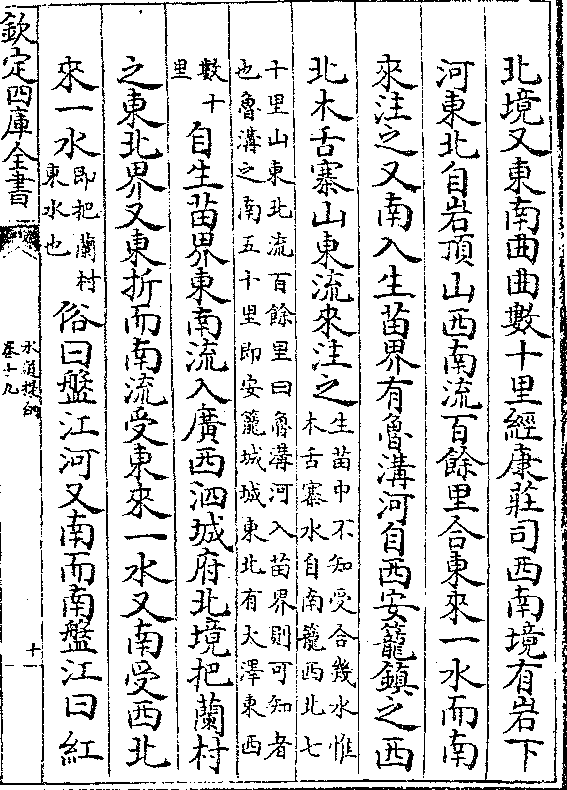 北境又東南曲曲數十里經康莊司西南境有岩下
河東北自岩頂山西南流百餘里合東來一水而南
來注之又南入生苗界有魯溝河自西安籠鎮之西
北木舌寨山東流來注之生苗中不知受合幾水惟
木舌寨水自南籠西北七
十里山東北流百餘里曰魯溝河入苗界則可知者
也魯溝之南五十里即安籠城城東北有大澤東西
數十
里自生苗界東南流入廣西泗城府北境把蘭村
之東北界又東折而南流受東來一水又南受西北
來一水即把蘭村
東水也俗曰盤江河又南而南盤江曰紅
欽定四庫全書
水道提綱
卷十九
十